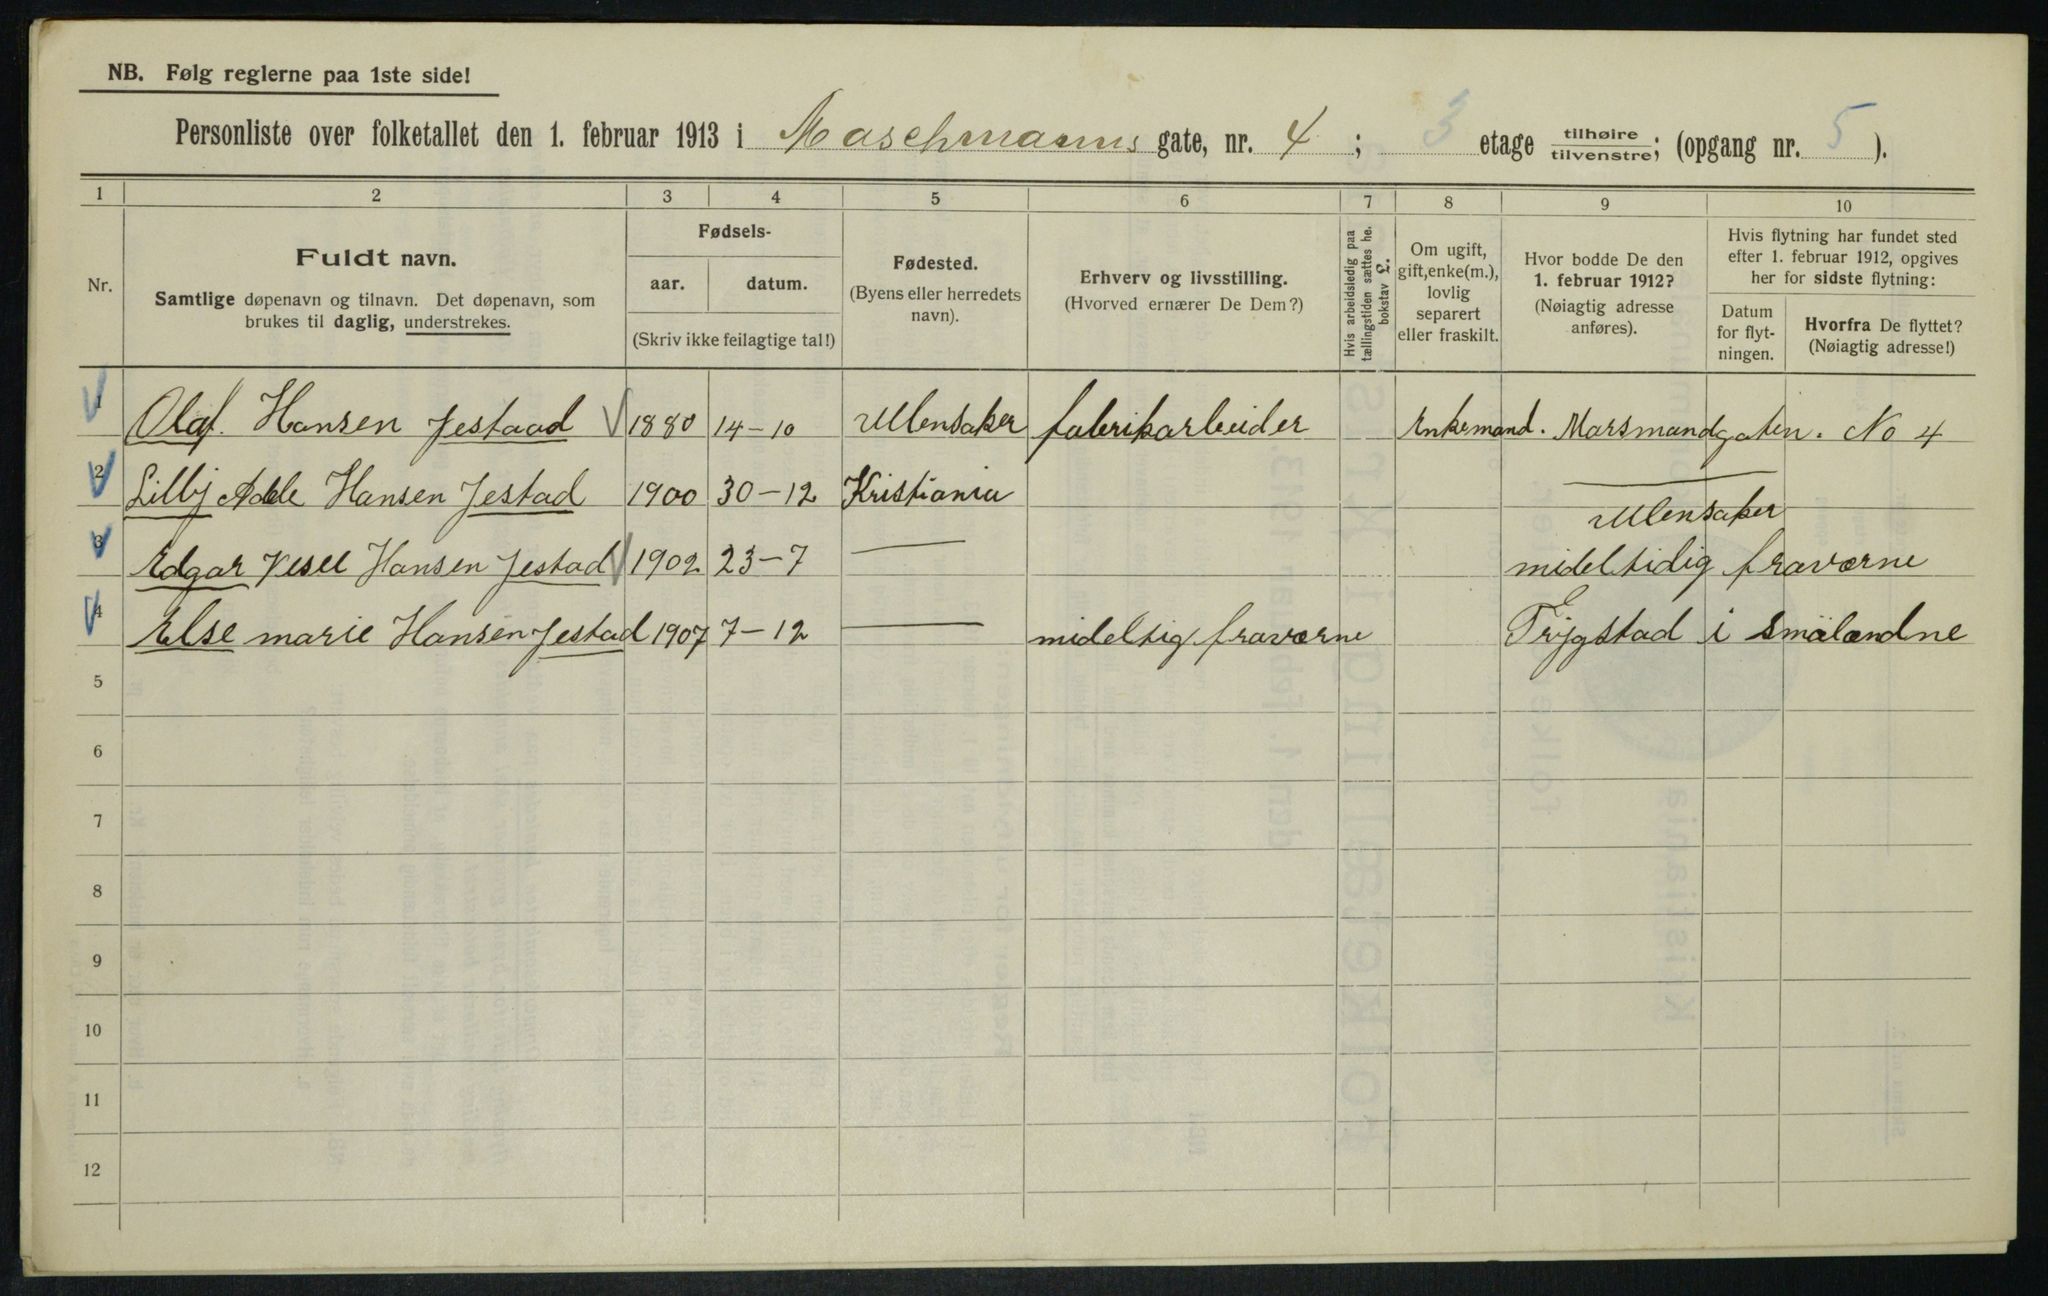 NB. Følg reglerne paa 1ste side!
Personliste over folketallet den 1. februar 1913 i Maschmanns gate, nr. 4 ; 3 etage tilhøire tilvenstre; (opgang nr. 5 ).
1 2 3 4 5 6 7 8 9 10
Nr.
Fuldt navn.
Samtlige døpenavn og tilnavn. Det døpenavn, som
brukes til daglig, understrekes.
Fødsels-
aar. datum.
(Skriv ikke feilagtige tal!)
Fødested.
(Byens eller herredets
navn).
Erhverv og livsstilling.
(Hvorved ernærer De Dem?)
Hvis arbeidsledig paa
tællingstiden sættes he.
bokstav £.
Om ugift,
gift, enke(m.),
lovlig
separert
eller fraskilt.
Hvor bodde De den
1. februar 1912?
(Nøiagtig adresse
anføres).
Hvis flytning har fundet sted
efter 1. februar 1912, opgives
her for sidste flytning:
Datum
for flyt-
ningen.
Hvorfra De flyttet?
(Nøiagtig adresse!)
1 Olaf. Hansen Jestaad 1880 14-10 Ullensaker fabrikarbeider Enkemand. Marsmandgaten. No 4
2 Lilly Adele Hansen Jestad 1900 30-12 Kristiania —
Ullensaker
3 Edgar Hansen Jestad 1902 23-7 — mideltidig fraværne
4 Else marie Hansen Jestad 1907 7-12 — mideltig fraværne Trygstad i Smålændne
5
6
7
8
9
10
11
12